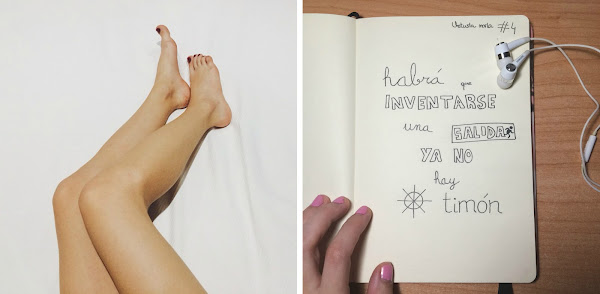 Vetusta morla #4
habrá que
INVENTARSE
una SALIDA
YA NO
hay
timón